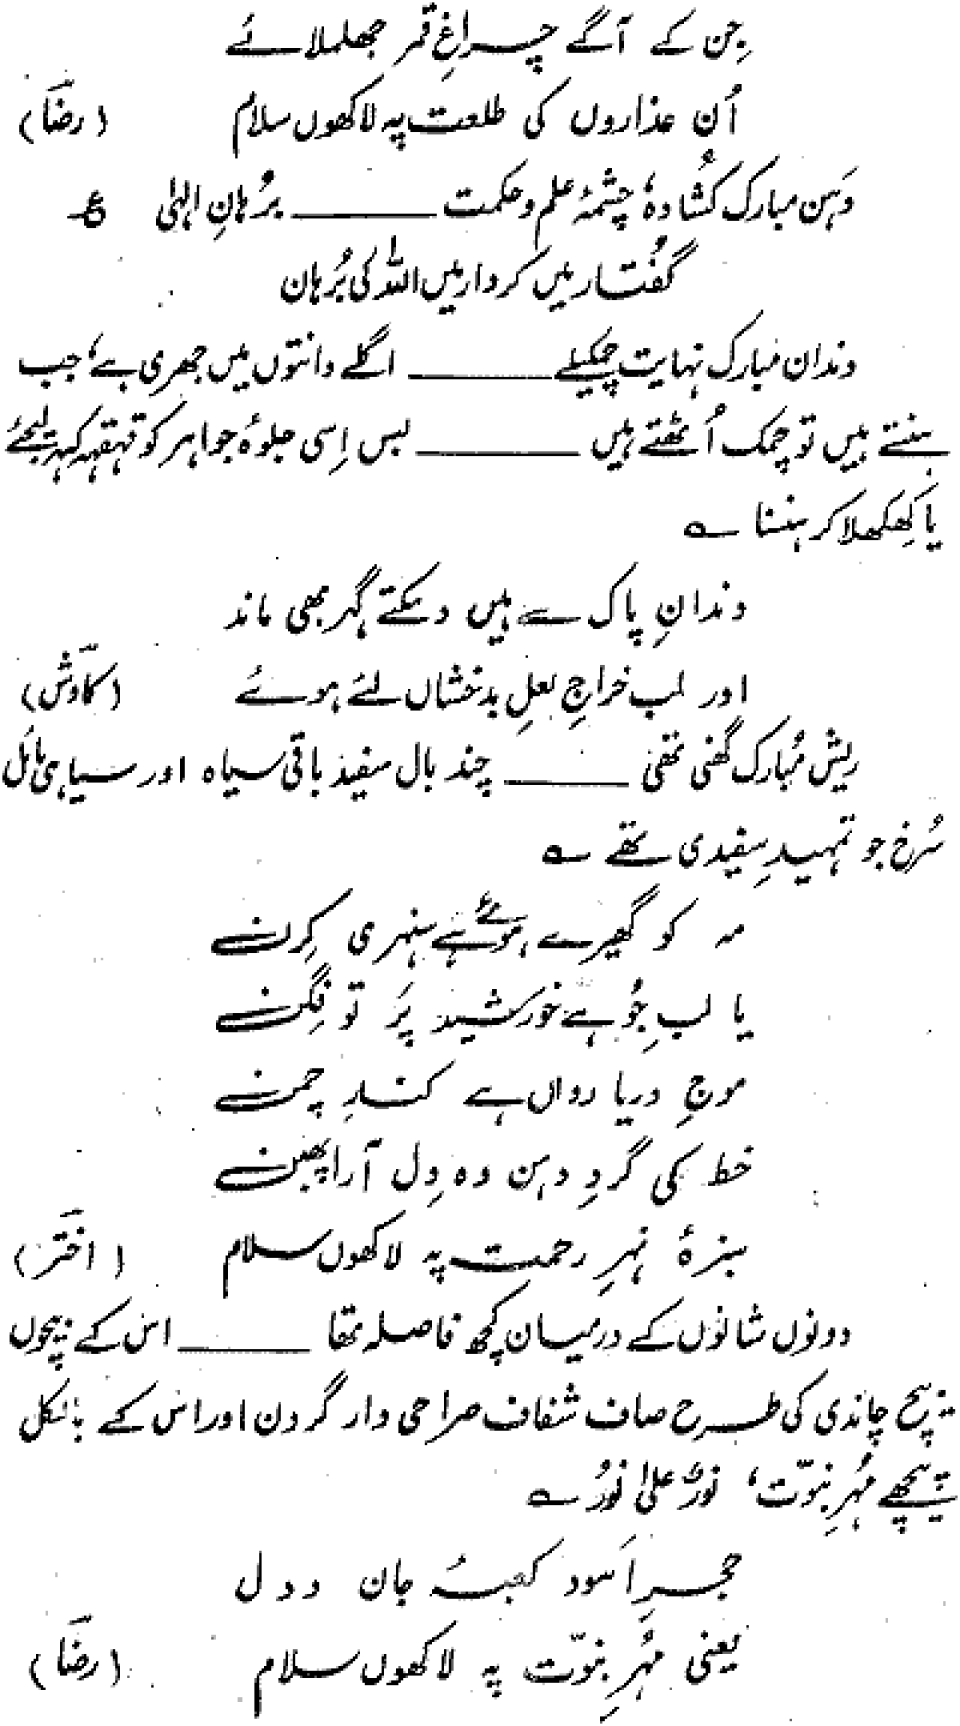 جن کے آگے چراغِ قمر جھلملائے
اُن عذاروں کی طلعت پہ لاکھوں سلام (رضؔا)
دہن مبارک کشادہ، چشمۂ علم و حکمت ـــــــــ برُہانِ الہٰی ؏
گفُتار میں کردار میں اللہ کی بُرہان
دندان مبارک نہایت چمکیلے ـــــــــ اگلے دانتوں میں جھری ہے، جب
ہنستے ہیں تو چمک اُٹھتے ہیں ـــــــــ بس اِسی جلوۂ جواہر کو قہقہہ کہہ لیجئے
یا کھِلکھلا کر ہنسنا ؎
دندانِ پاک سے ہیں دمکتے گہر بھی ماند
اور لب خراجِ لعلِ بدخشاں لئے ہوئے (کاوؔش)
ریش مُبارک گھنی تھی ـــــــــ چند بال سفید باقی سیاہ اور سیاہی مائل
سُرخ جو تمہیدِ سفیدی تھے ؎
مہ کو گھیرے ہوئے ہے سنہری کِرن
یا لبِ جُو ہے خورشید پَر تو فِگن
موجِ دریا رواں ہے کنارِ چمن
خط کی گردِ دہن وہ دِل آرا پھبن
سبزۂ نہرِ رحمت پہ لاکھوں سلام (اختؔر)
دونوں شانوں کے درمیان کچھ فاصلہ تھا ـــــــــ اس کے بیچوں
بیچ چاندی کی طرح صاف شفاف صراحی دار گردن اور اس کے بالکل
پیچھے مُہرِ نبوّت، نورٌ علیٰ نورُ ؎
حجرِ اَسود کعبۂ جان و دل
یعنی مُہرِ نبوّت پہ لاکھوں سلام (رضؔا)